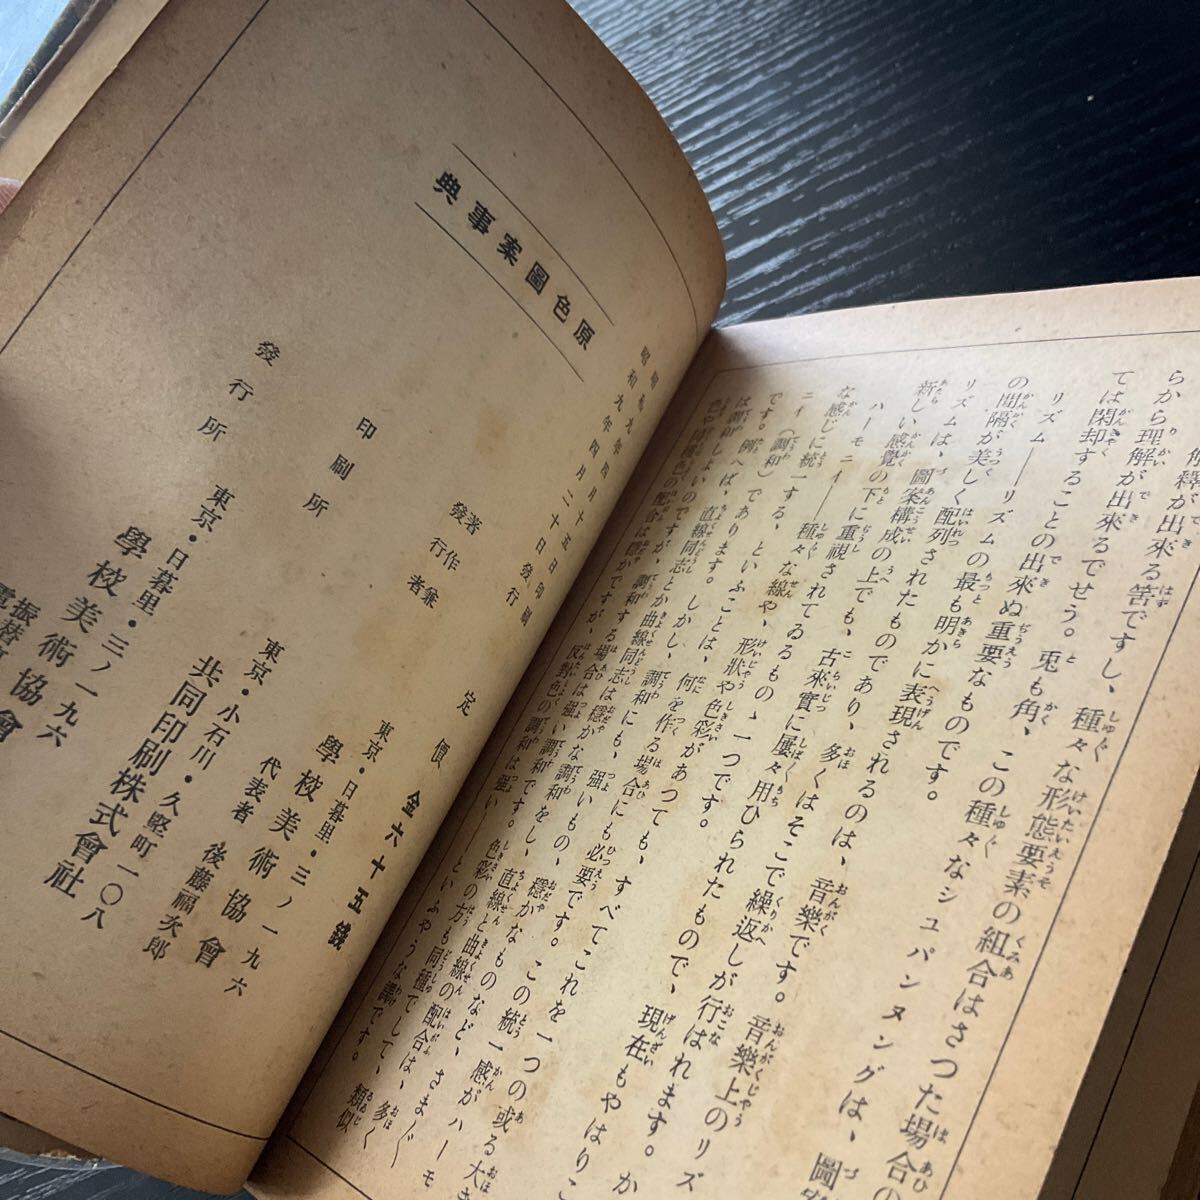 解釋が出來る筈ですし、種々な形態要素の組合はさつた場合の
らから理解が出來るでせう。兎も角、この種々なシュパンヌングは、圖
ては閑却することの出來ぬ重要なものです。
リズム——リズムの最も明かに表現されるのは、音樂です。音樂上のリズ
の間隔が美しく配列されたものであり、多くはそこで繰返しが行はれます。か
リズムは、圖案構成の上でも、古來實に屢々用ひられたもので、現在もやはりこ
新しい感覺の下に重視されてゐるものゝ一つです。
ハーモニイ——種々な線や、形狀や色彩があつても、すべてこれを一つの或る大き
な感じに統一する、といふことは、何を作る場合にも必要です。この統一感がハーモ
ニイ(調和)であります。しかし、調和にも、强いもの、穩かなものなど、さまざま
です。例へば、直線同志とか曲線同志は穩かな調和をし、直線と曲線の配合は、多く
は調和
原色圖案事典
昭和九年四月十五日印刷
昭和九年四月二十日發行
定價 金六十五錢
著作兼
發行者
東京・日暮里・三ノ一九六
學校美術協會
代表者 後藤福次郎
印刷所
東京・小石川・久堅町一〇八
共同印刷株式會社
發行所
東京・日暮里・三ノ一九六
學校美術協會
振替
電